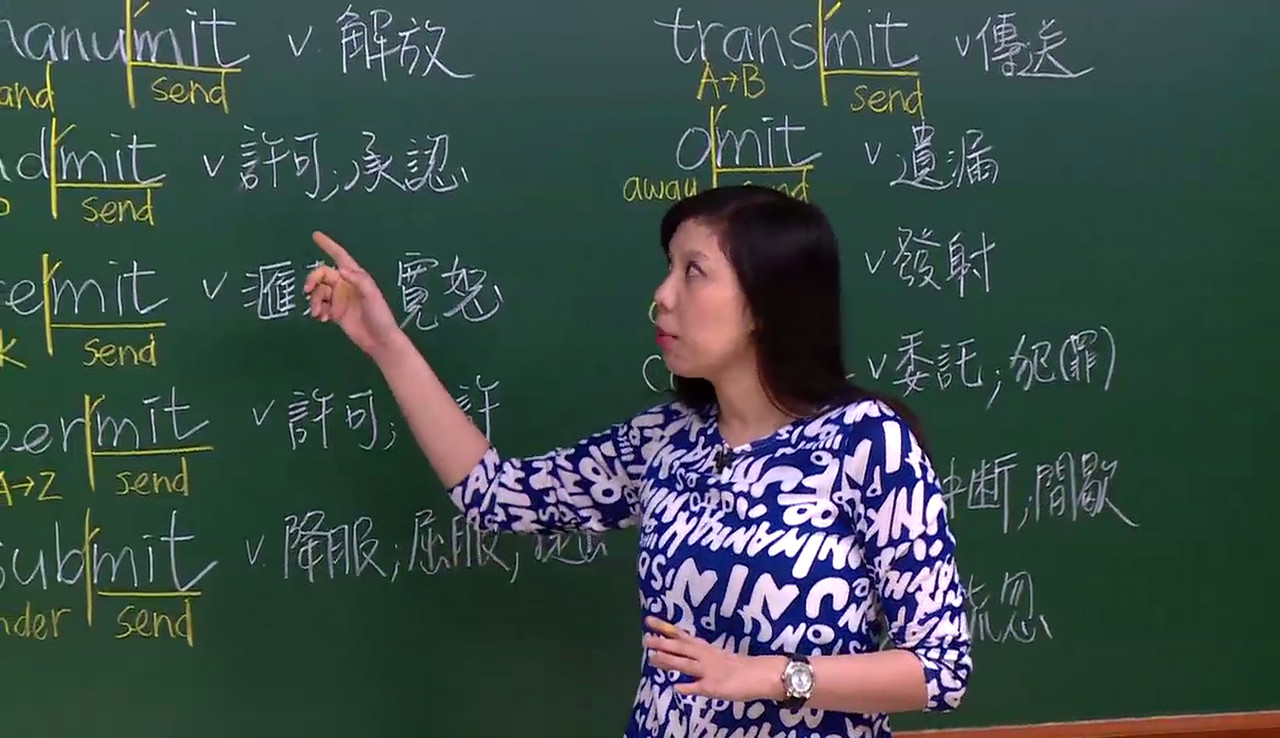 manumit v. 解放
and send
admit v 許可;承認
send
remit v 滙 寬恕
send
permit v 許可;
A→Z send
submit v. 降服;屈服,
under send
transmit v 傳送
A→B send
omit v 遺漏
away send
v 發射
v 委託;犯(罪)
中斷;間歇
疏忽